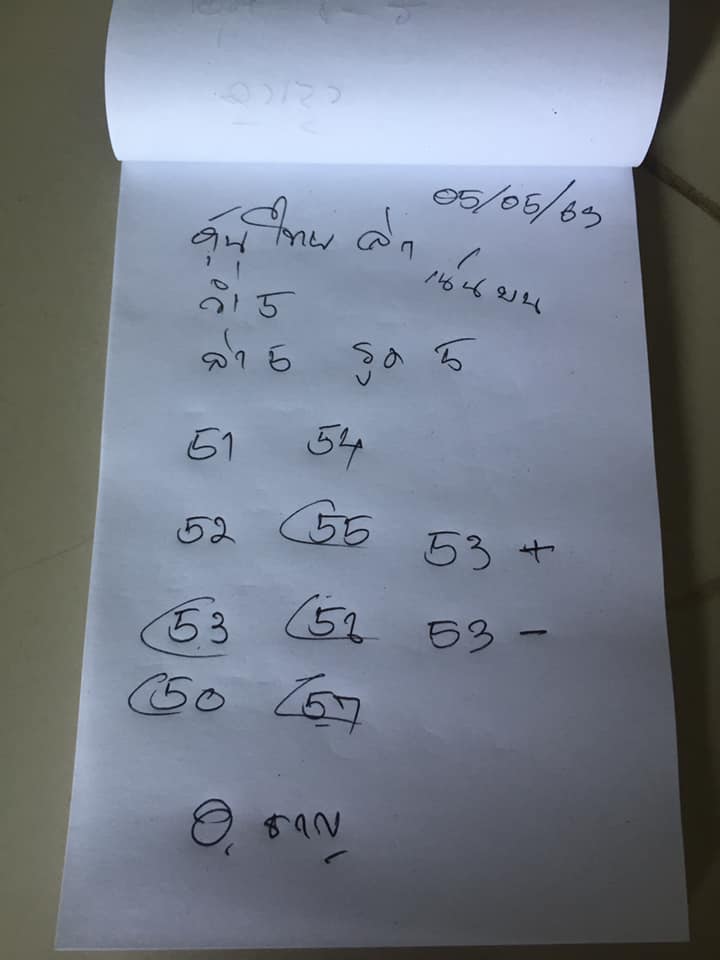 05/05/63
หุ้นไทย ล่า
เน้นบน
ล่า 5
ล่า 5 รูด 5
51 54
52 55 53 +
53 58 53 -
50 57
อ. ชาญ